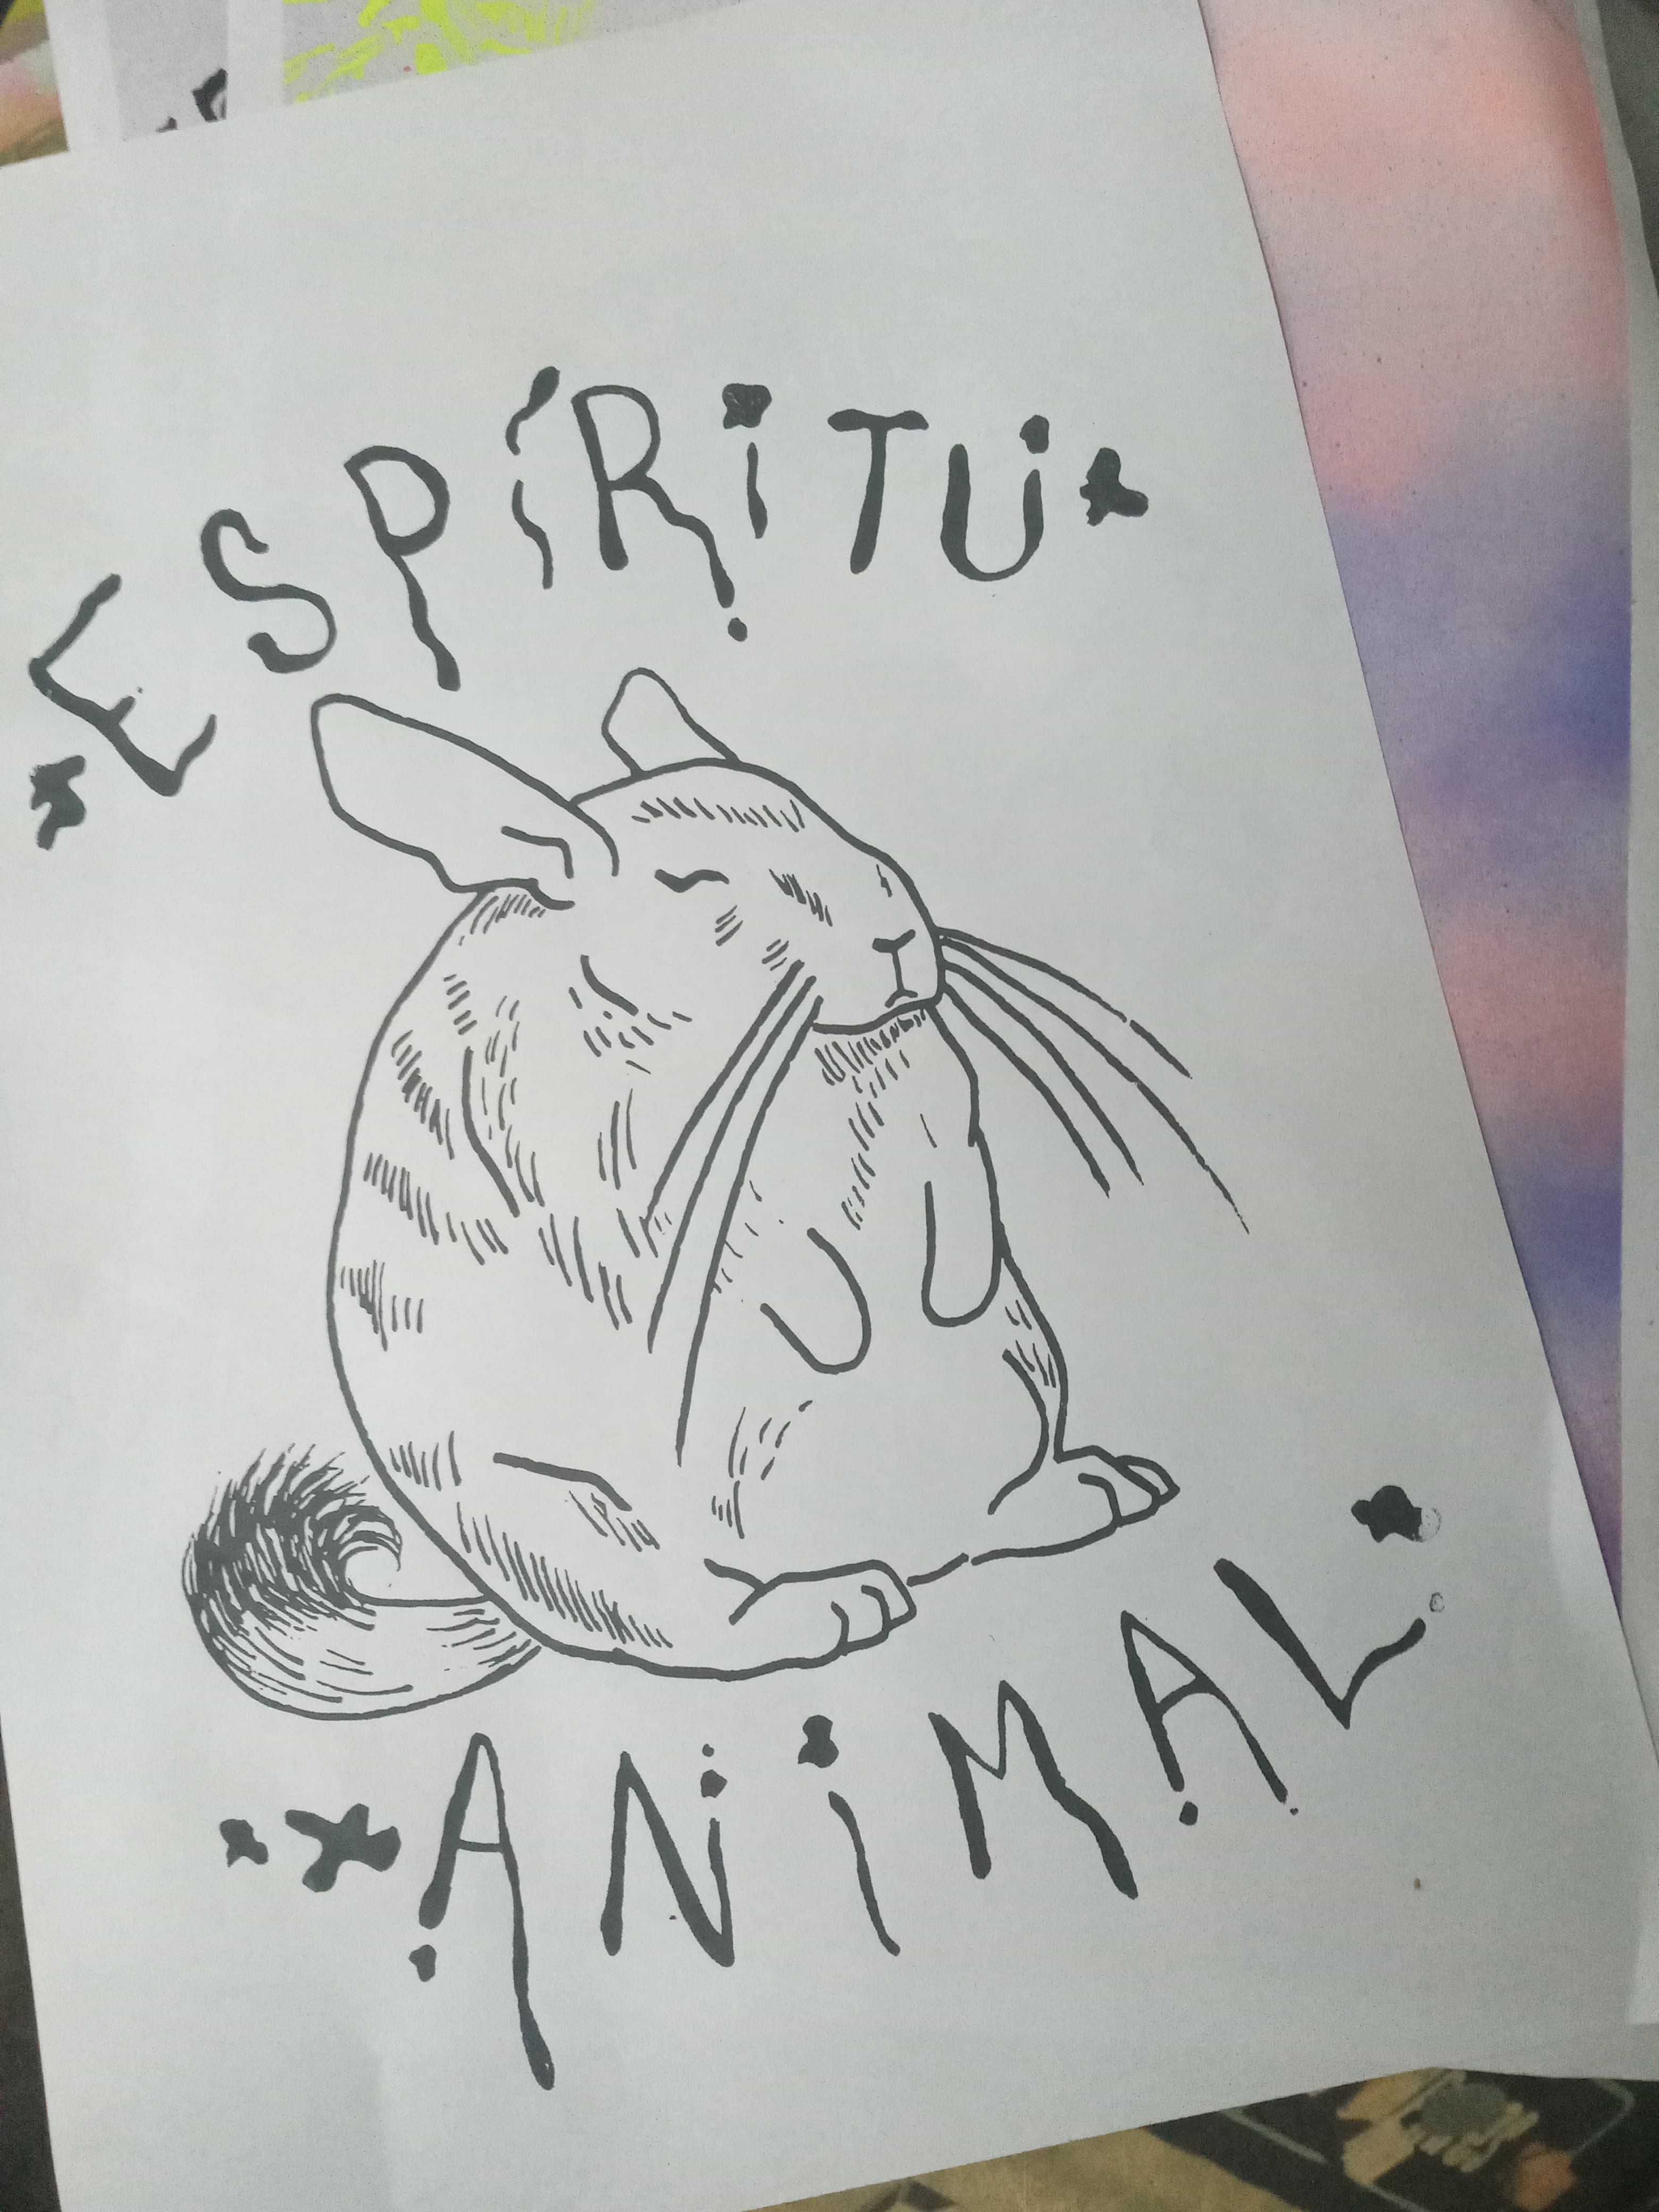 ESPÍRiTU
ANiMAL